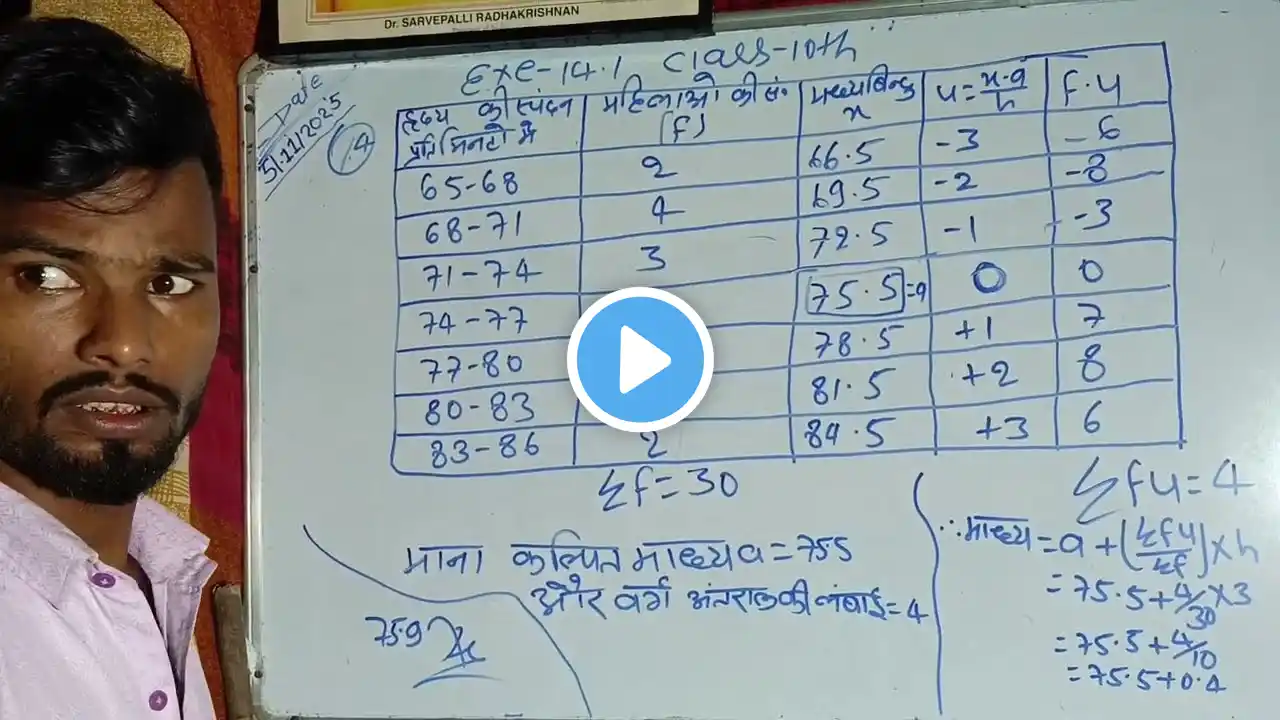 Dr. SARVEPALLI RADHAKRISHNAN
Exe-14.1 Class-10th
Date
5/11/2025
.4
हृदय की स्पंदन प्रति मिनटो मे | महिलाओ की सं० (f) | मध्यबिन्दु x | u = x-a/h | f.u
65-68 | 2 | 66.5 | -3 | -6
68-71 | 4 | 69.5 | -2 | -8
71-74 | 3 | 72.5 | -1 | -3
74-77 | 75.5 = a | 0 | 0
77-80 | 78.5 | +1 | 7
80-83 | 81.5 | +2 | 8
83-86 | 2 | 84.5 | +3 | 6
Σf = 30
Σfu = 4
माना कल्पित माध्य a = 755
और वर्ग अंतराल की लंबाई = 4
75.9
∴ माध्य = a + (Σfu/Σf) x h
= 75.5 + 4/30 x 3
= 75.5 + 4/10
= 75.5 + 0.4